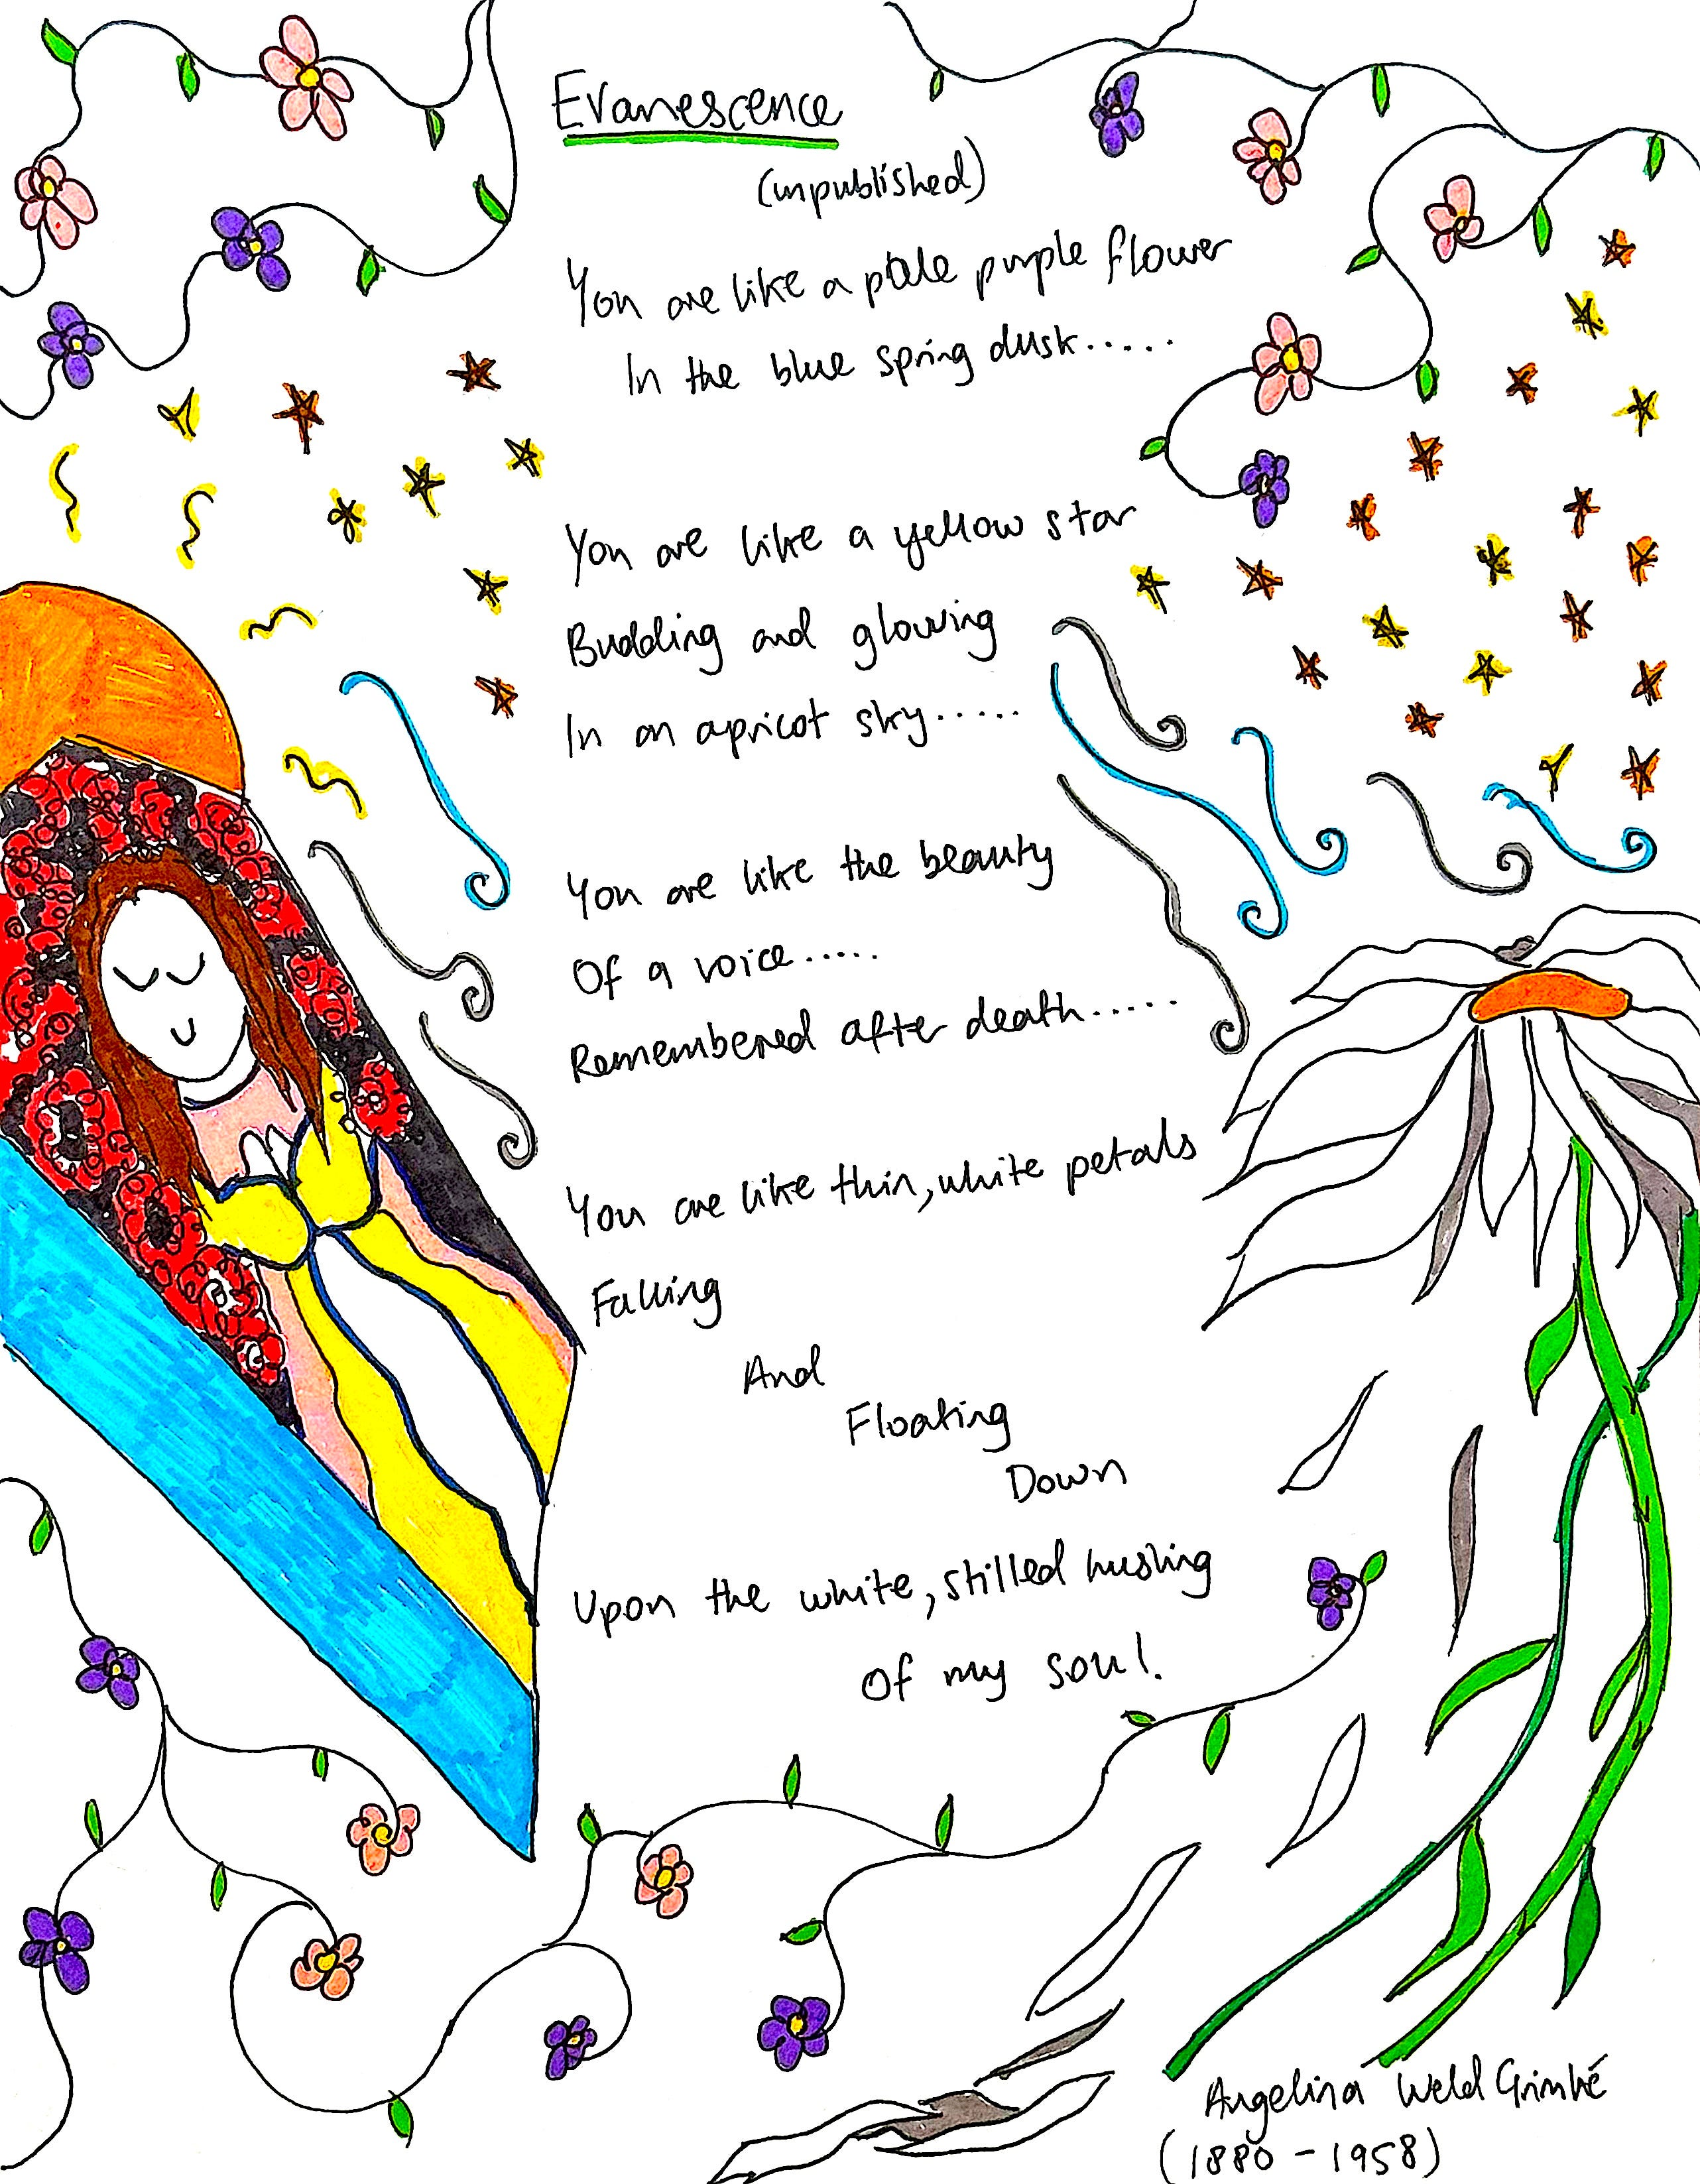 Evanescence
(unpublished)
You are like a pale purple flower
In the blue spring dusk.....
You are like a yellow star
Budding and glowing
In an apricot sky.....
You are like the beauty
Of a voice.....
Remembered after death.....
You are like thin, white petals
Falling
And
Floating
Down
Upon the white, stilled hushing
Of my soul.
Angelina Weld Grimké
(1880 - 1958)